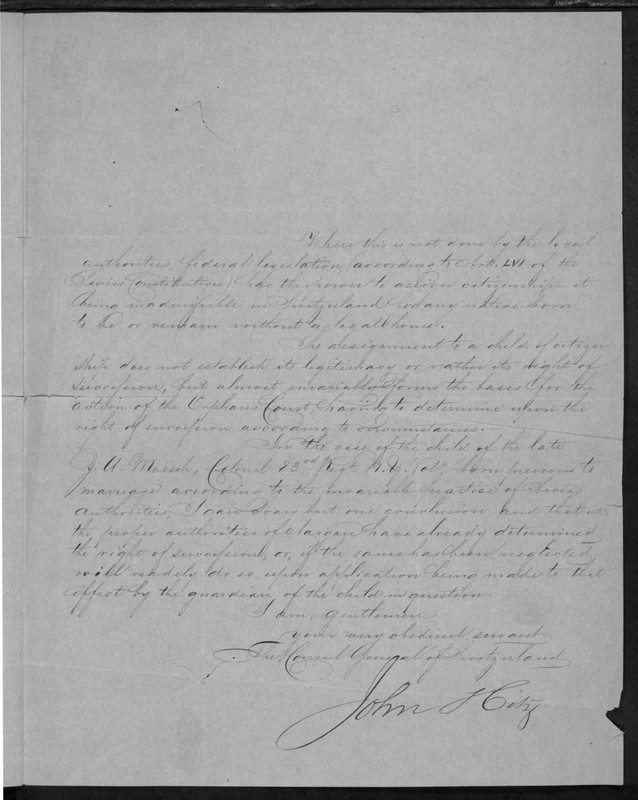 Where this is not done by the local
authorities, federal legislation, according to Art. LVI of the
Swiss Constitution, has the power to assign citizenship, it
being inadmissible in Switzerland for any native born
to be or remain without a legal home.
The assignment to a child of citizen
ship does not establish its legitimacy or rather its right of
succession, but almost invariably forms the basis for the
action of the Orphans Court, having to determine upon the
right of succession according to circumstances.
In the case of the child of the late
J. A. Colonel 83rd Regt. N.Y. Vols, born previous to
marriage according to the invariable practice of Swiss
authorities, I can draw but one conclusion and that is
the proper authorities of Aargau have already determined
the right of succession, or, if the same has been neglected,
will readily do so, upon application being made to that
effect by the guardian of the child in question.
I am, gentlemen
your very obedient servant
The Consul General of Switzerland
John Hitz